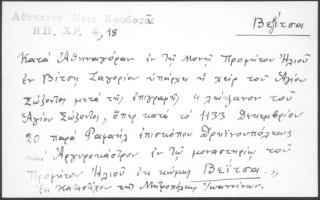 Αθηναγορ. Νεος Κουβαρᾶς
ΗΠ. ΧΡ. 4, 18
Βεζίτσα
Κατά Ἀθηναγόραν ἐν τῇ Μονῇ Προφήτου Ἠλιού
ἐν Βίτσῃ Ζαγορίου ὑπάρχει ἡ χείρ τοῦ Ἁγίου
Σώζοντος μετά τῆς ἐπιγραφῆς « λείψανον τοῦ
Ἁγίου Σώζοντος, ὅπερ κατά το 1133 Δεκεμβρίου
20 παρά Ραφαήλ ἐπισκόπου Δρυϊνουπόλεως
καί Ἀργυροκάστρου ἐν τῷ μοναστηρίῳ τοῦ
Προφήτου Ἠλιού ἐν κώμῃ Βεζίτσα. „
ἐκ Καταστίχου τῆς Μητροπόλεως Ἰωαννίνων.